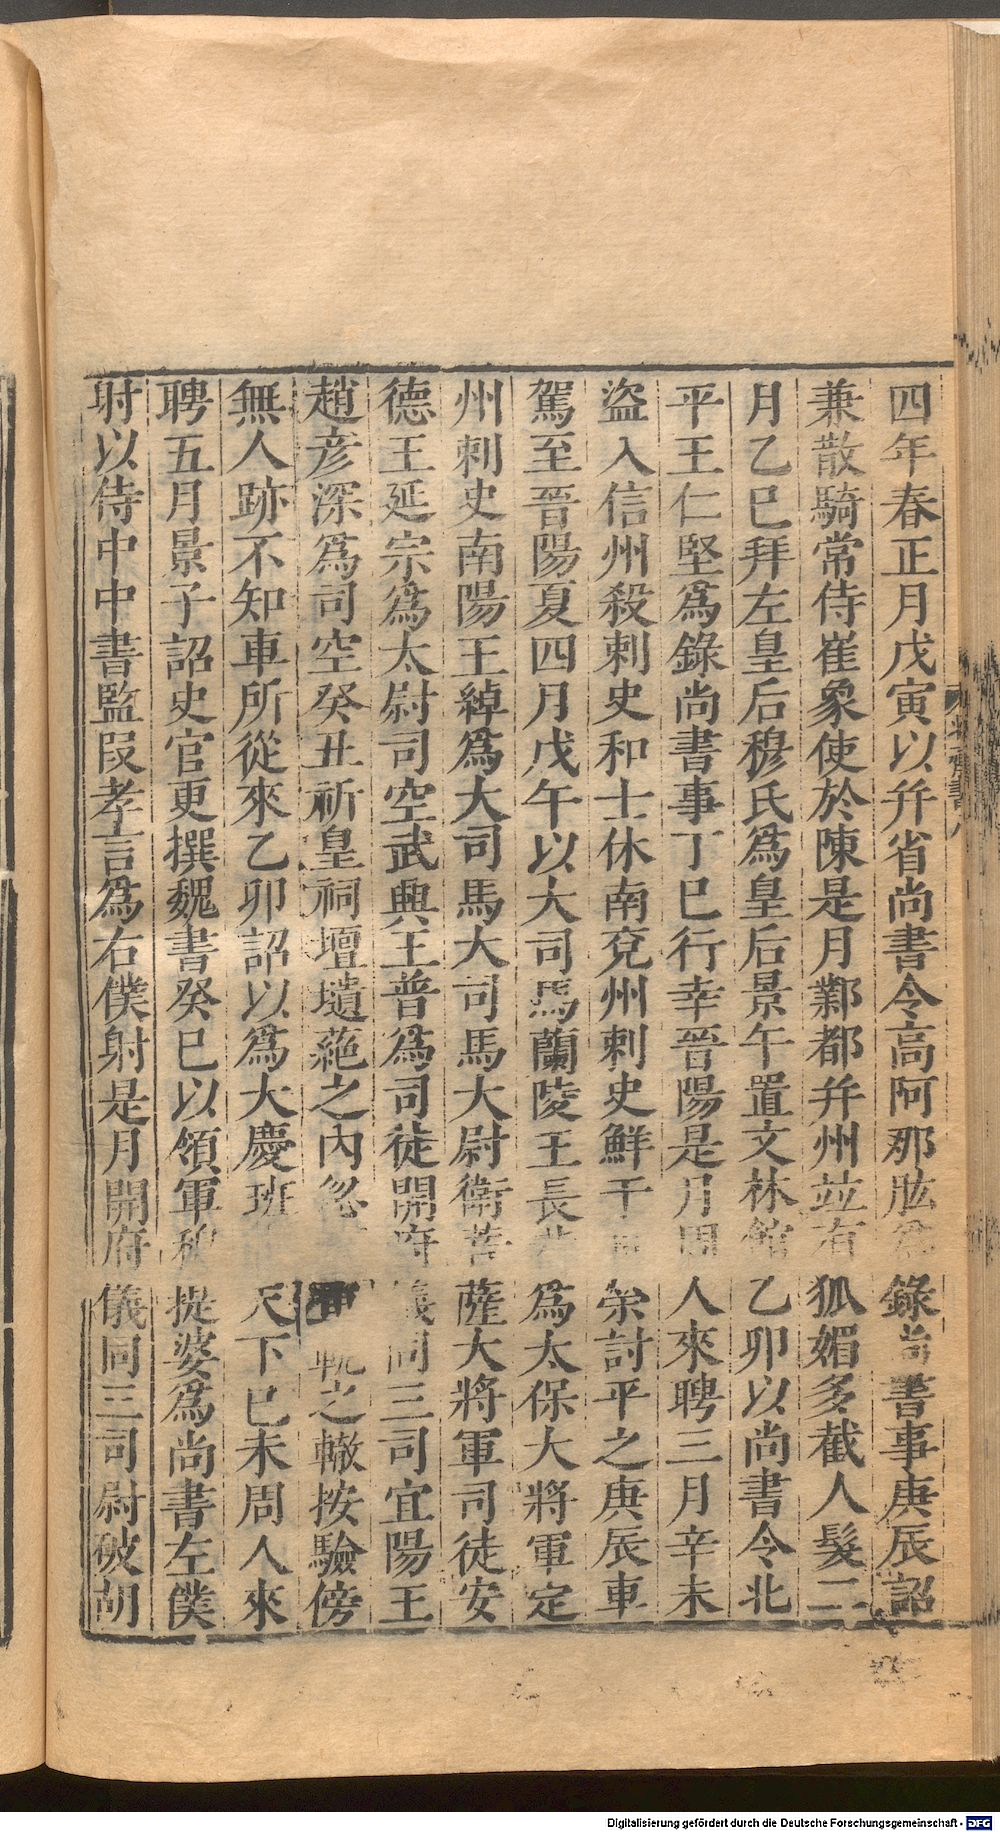 四年春正月戊寅以并省尚書令高阿那肱爲錄尚書事庚辰詔
兼散騎常侍崔象使於陳是月鄴都并州竝有狐媚多截人髮二
月乙巳拜左皇后穆氏爲皇后景午置文林館乙卯以尚書令北
平王仁堅爲錄尚書事丁巳行幸晉陽是月周人來聘三月辛未
盜入信州殺刺史和士休南兗州刺史鮮于討平之庚辰車
駕至晉陽夏四月戊午以大司馬蘭陵王長爲太保大將軍定
州刺史南陽王綽爲大司馬大司馬大尉衛菩薩大將軍司徒安
德王延宗爲太尉司空武興王普爲司徒開府儀同三司宜陽王
趙彦深爲司空癸丑祈皇祠壇壝蕝之內忽軌之轍按驗傍
無人跡不知車所從來乙卯詔以爲大慶班天下己未周人來
聘五月景子詔史官更撰魏書癸巳以領軍穆提婆爲尚書左僕
射以侍中中書監段孝言爲右僕射是月開府儀同三司尉破胡
Digitalisierung gefördert durch die Deutsche Forschungsgemeinschaft - DFG